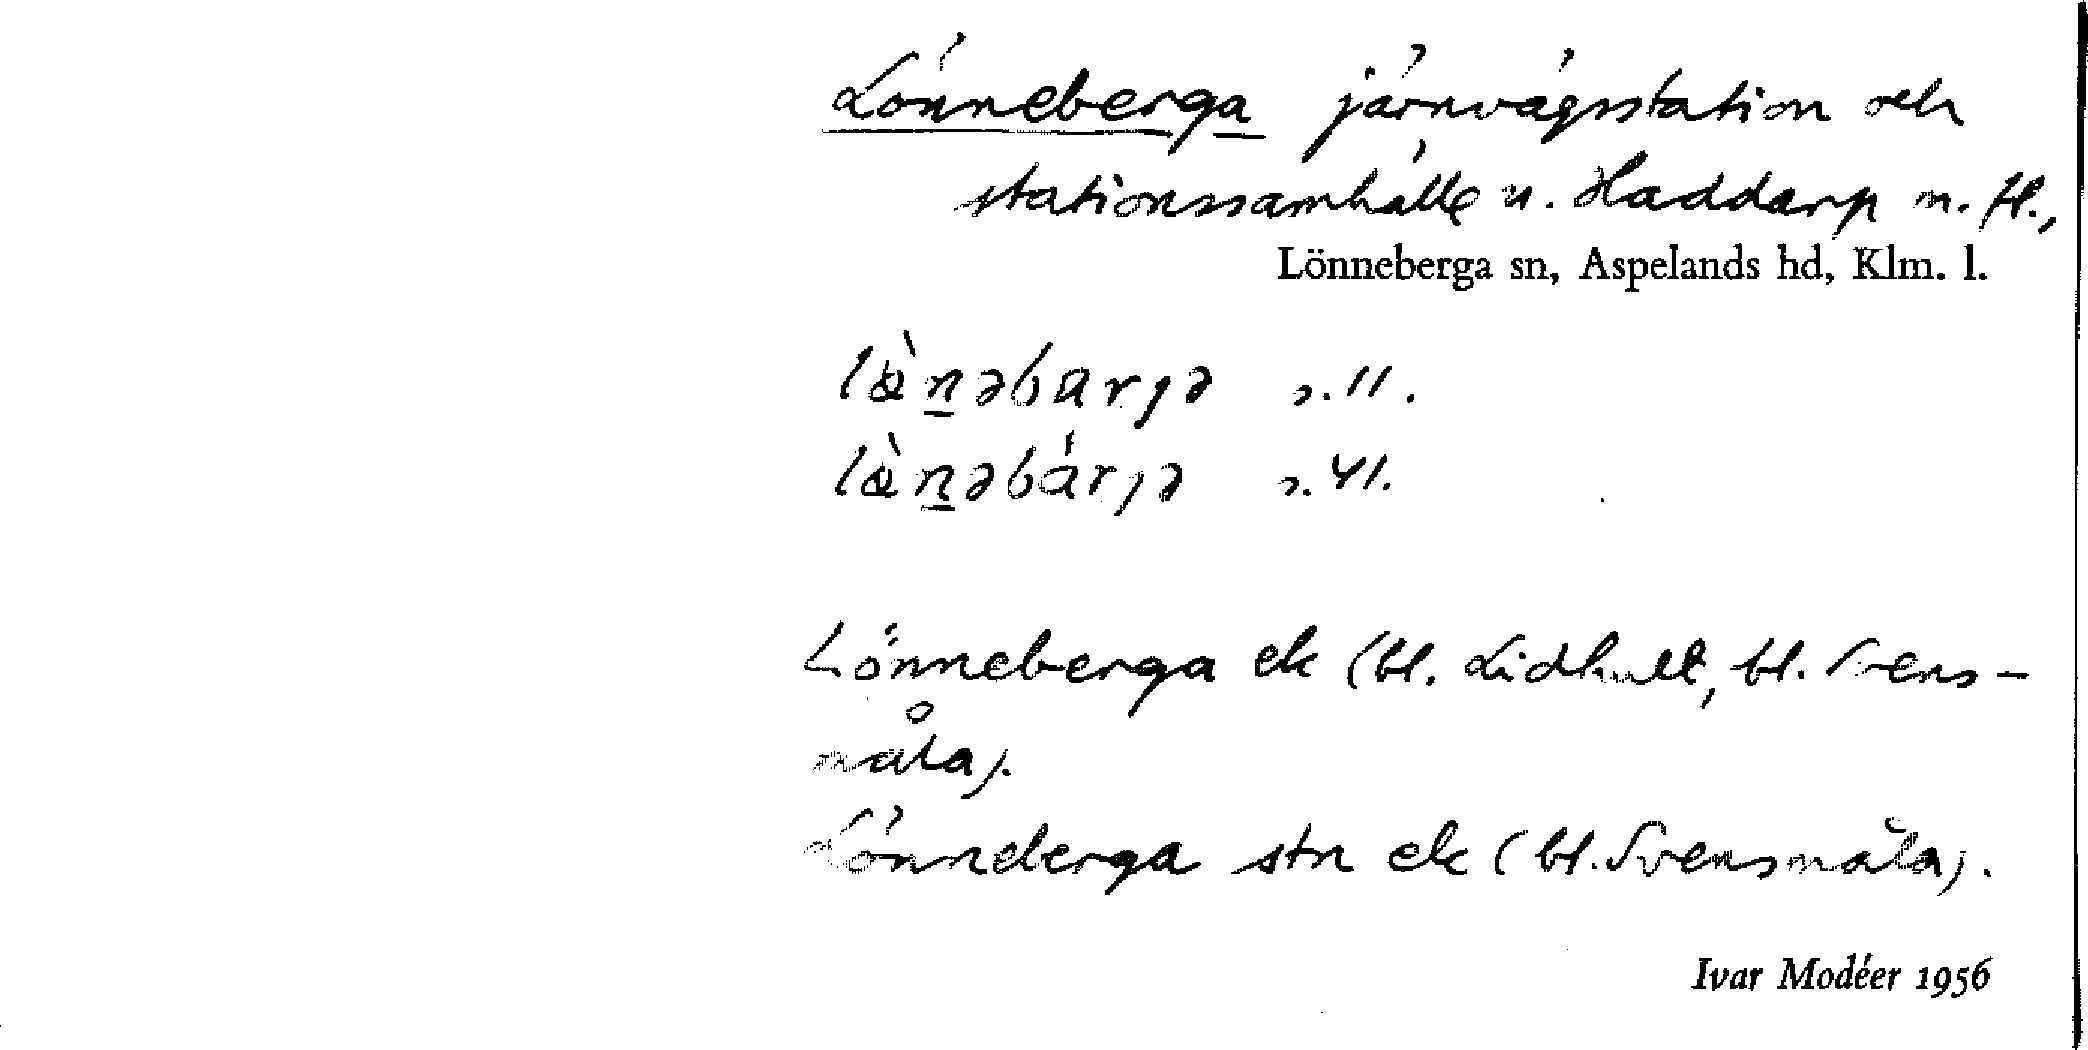 Lönneberga järnvägsstation och
stationssamhälle u. Haddarp m. fl.,
Lönneberga sn, Aspelands hd, Klm. l.
s. 11.
s. 41.
Lönneberga ek (bl. Lidhult, bl. Svens-
måla).
Lönneberga stn ek (bl. Svensmåla).
Ivar Modéer 1956